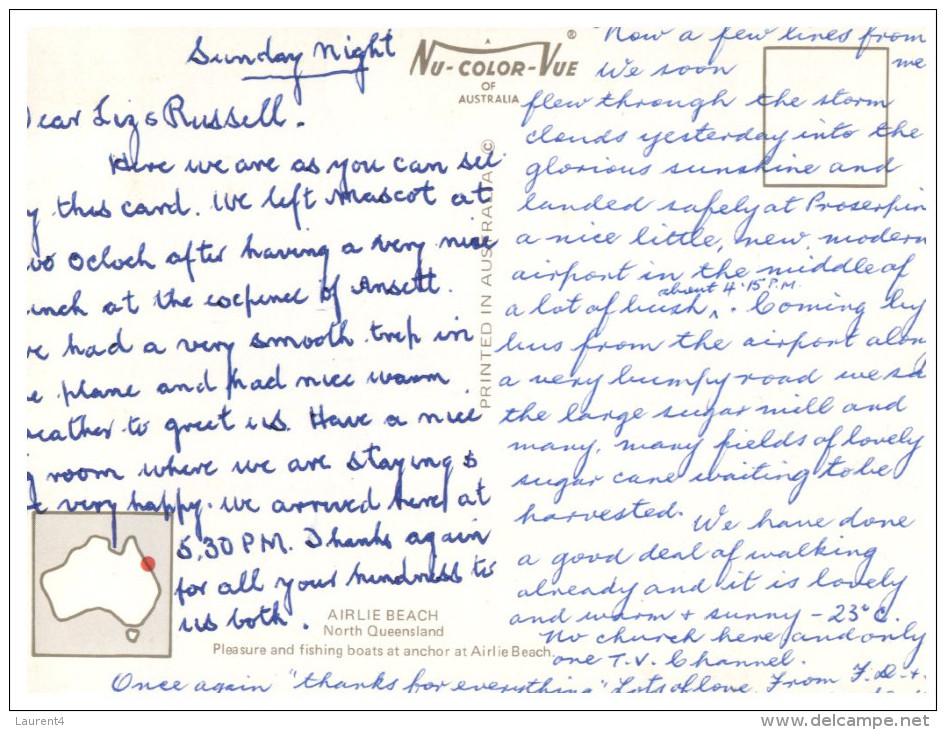 Sunday Night
Dear Liz & Russell.
Here we are as you can see
by this card. We left Mascot at
two Oclock after having a very nice
lunch at the expence of Ansett.
We had a very smooth trip in
the plane and had nice warm
weather to greet us. Have a nice
big room where we are staying &
very happy. We arrived here at
5,30 P.M. Thanks again
for all your kindness to
us both.
AIRLIE BEACH
North Queensland
Pleasure and fishing boats at anchor at Airlie Beach.
NU-COLOR-VUE ®
A
OF
AUSTRALIA
PRINTED IN AUSTRALIA ©
Now a few lines from
me
We soon
flew through the storm
clouds yesterday into the
glorious sunshine and
landed safely at Proserpin
a nice little, new, modern
airport in the middle of
a lot of bush ^ about 4.15 P.M. . Coming by
bus from the airport along
a very bumpy road we sa
the large sugar mill and
many, many fields of lovely
sugar cane waiting to be
harvested. We have done
a good deal of walking
already and it is lovely
and warm + sunny - 23°C.
No church here and only
one T.V. Channel.
Once again "thanks for everything" Lots of love From F. D. +
Laurent4
www.delcampe.net